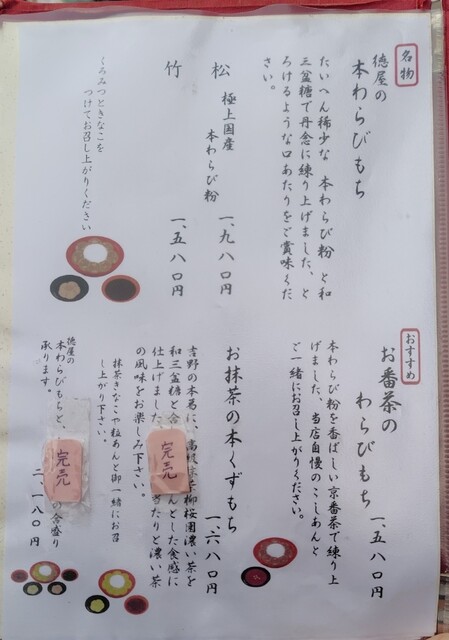 名物
徳屋の
本わらびもち
たいへん稀少な 本わらび粉 と和
三盆糖で丹念に練り上げました、と
ろけるような口あたりをご賞味くだ
さい。
松 極上国産
本わらび粉 一、九八〇円
竹 一、五八〇円
くろみつときなこを
つけてお召し上がりください
おすすめ
お番茶の
わらびもち 一、五八〇円
本わらび粉を香ばしい京番茶で練り上
げました、当店自慢のこしあんと
ご一緒にお召し上がりください。
お抹茶の本くずもち 一、六八〇円
吉野の本葛に、
柳桜園濃い茶を
和三盆糖と
んとした食感に
仕上げました
当たりと濃い茶
の風味をお楽しみ下さい。
抹茶きなこや粒あんと御一緒にお召
し上がり下さい。
完売
徳屋の
本わらびもちと、
の合盛り
承ります。
二、一八〇円
完売